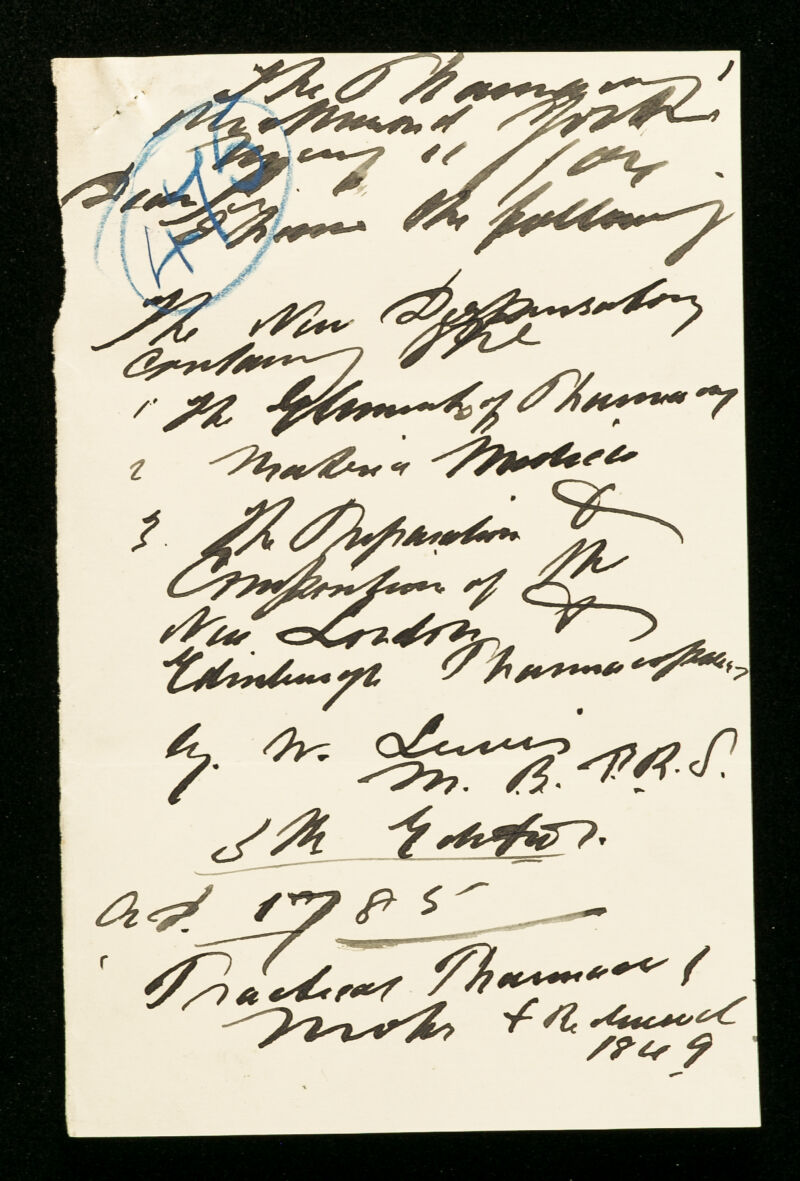 The Pharmacy
York
475
11/04
Dear Sir
I have the following
The New Dispensatory
Containing The
1 The Elements of Pharmacy
2 Materia Medica
3. The Preparation &
Composition of the
New London &
Edinburgh Pharmacopoeias
by. W. Lewis
M. B. F. R. S.
5th Edition.
A.D. 1785
Practical Pharmacy
Mohr & Redwood
1849